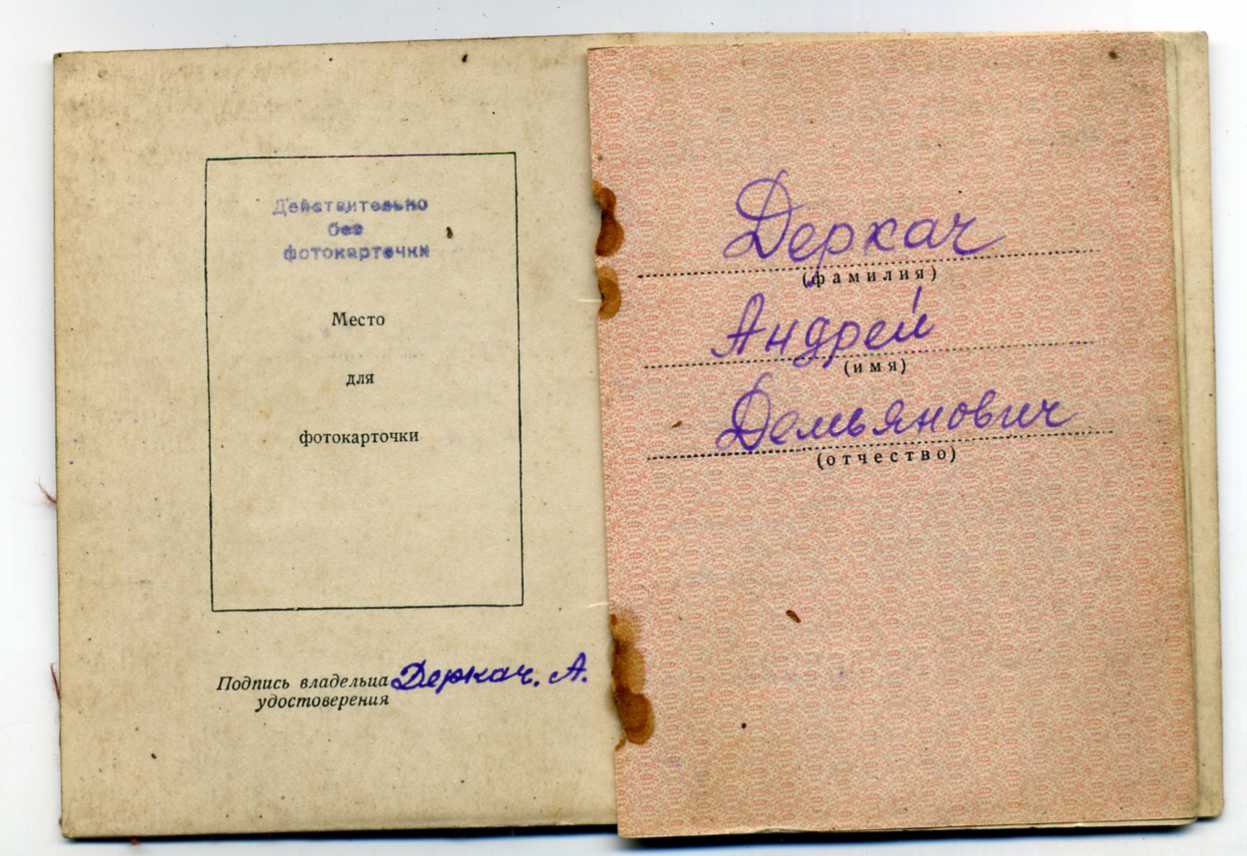 Действительно
без
фотокарточки
Место
для
фотокарточки
Подпись владельца Деркач. А.
удостоверения
Деркач
(фамилия)
Андрей
(имя)
Демьянович
(отчество)